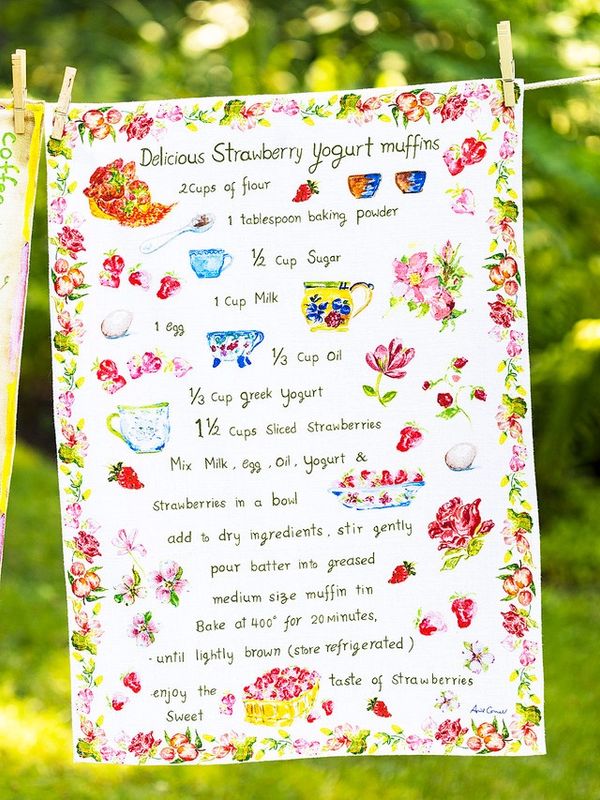 Delicious Strawberry Yogurt muffins
2 Cups of flour
1 tablespoon baking powder
1/2 Cup Sugar
1 Cup Milk
1 egg
1/3 Cup Oil
1/3 Cup greek Yogurt
1 1/2 Cups Sliced Strawberries
Mix Milk, egg, Oil, Yogurt &
Strawberries in a bowl
add to dry ingredients, stir gently
pour batter into greased
medium size muffin tin
Bake at 400° for 20 Minutes,
-until lightly brown (store refrigerated)
enjoy the taste of Strawberries
Sweet
Coffee